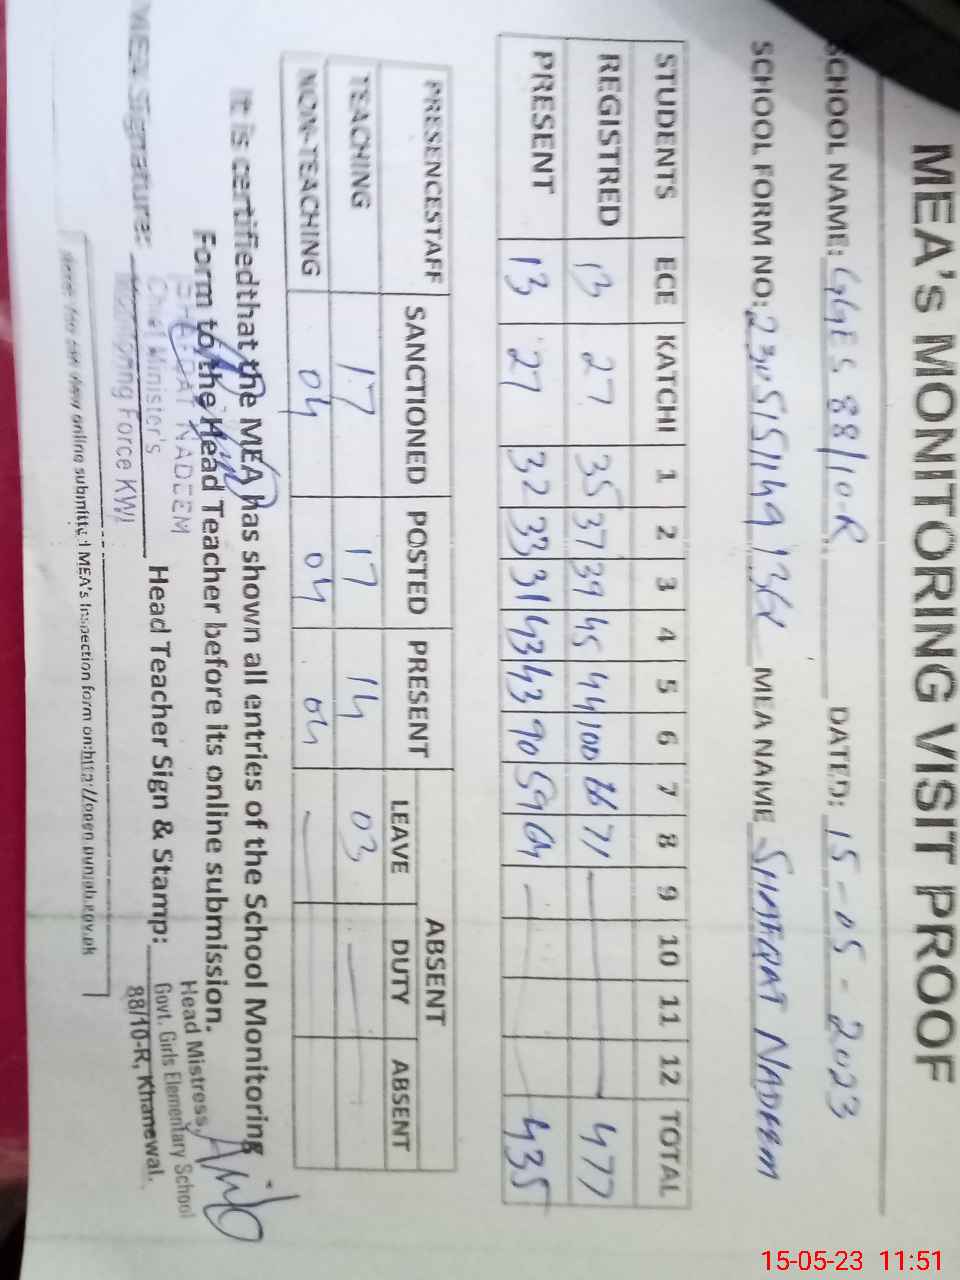 MEA's MONITORING VISIT PROOF
SCHOOL NAME: GGES 88/10-R DATED: 15-05-2023
SCHOOL FORM NO: MEA NAME SHAFQAT NADEEM
STUDENTS ECE KATCHI 1 2 3 4 5 6 7 8 9 10 11 12 TOTAL
REGISTRED 13 27 35 37 39 45 44 100 66 71 — 477
PRESENT 13 27 32 33 31 43 43 90 59 64 — 435
PRESENCESTAFF SANCTIONED POSTED PRESENT ABSENT
LEAVE DUTY ABSENT
TEACHING 17 17 14 03 —
NON-TEACHING 04 04 04 —
It is certifiedthat the MEA has shown all entries of the School Monitoring
Form to the Head Teacher before its online submission.
MEA Signature: Head Teacher Sign & Stamp:
SHAFQAT NADEEM
Chief Minister's
Monitoring Force KWL
Head Mistress
Govt. Girls Elementary School
88/10-R, Khanewal.
online submitted MEA's Inspection form on:http://open.punjab.gov.pk
15-05-23 11:51